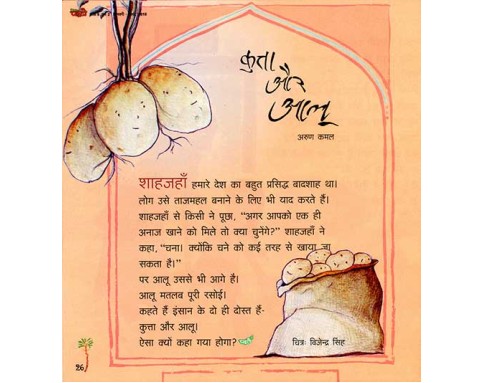 कुत्ता
और
आलू
अरुण कमल
शाहजहाँ हमारे देश का बहुत प्रसिद्ध बादशाह था।
लोग उसे ताजमहल बनाने के लिए भी याद करते हैं।
शाहजहाँ से किसी ने पूछा, “अगर आपको एक ही
अनाज खाने को मिले तो क्या चुनेंगे?” शाहजहाँ ने
कहा, “चना। क्योंकि चने को कई तरह से खाया जा
सकता है।”
पर आलू उससे भी आगे है।
आलू मतलब पूरी रसोई।
कहते हैं इंसान के दो ही दोस्त हैं-
कुत्ता और आलू।
ऐसा क्यों कहा गया होगा?
चित्रः विजेन्द्र सिंह
26